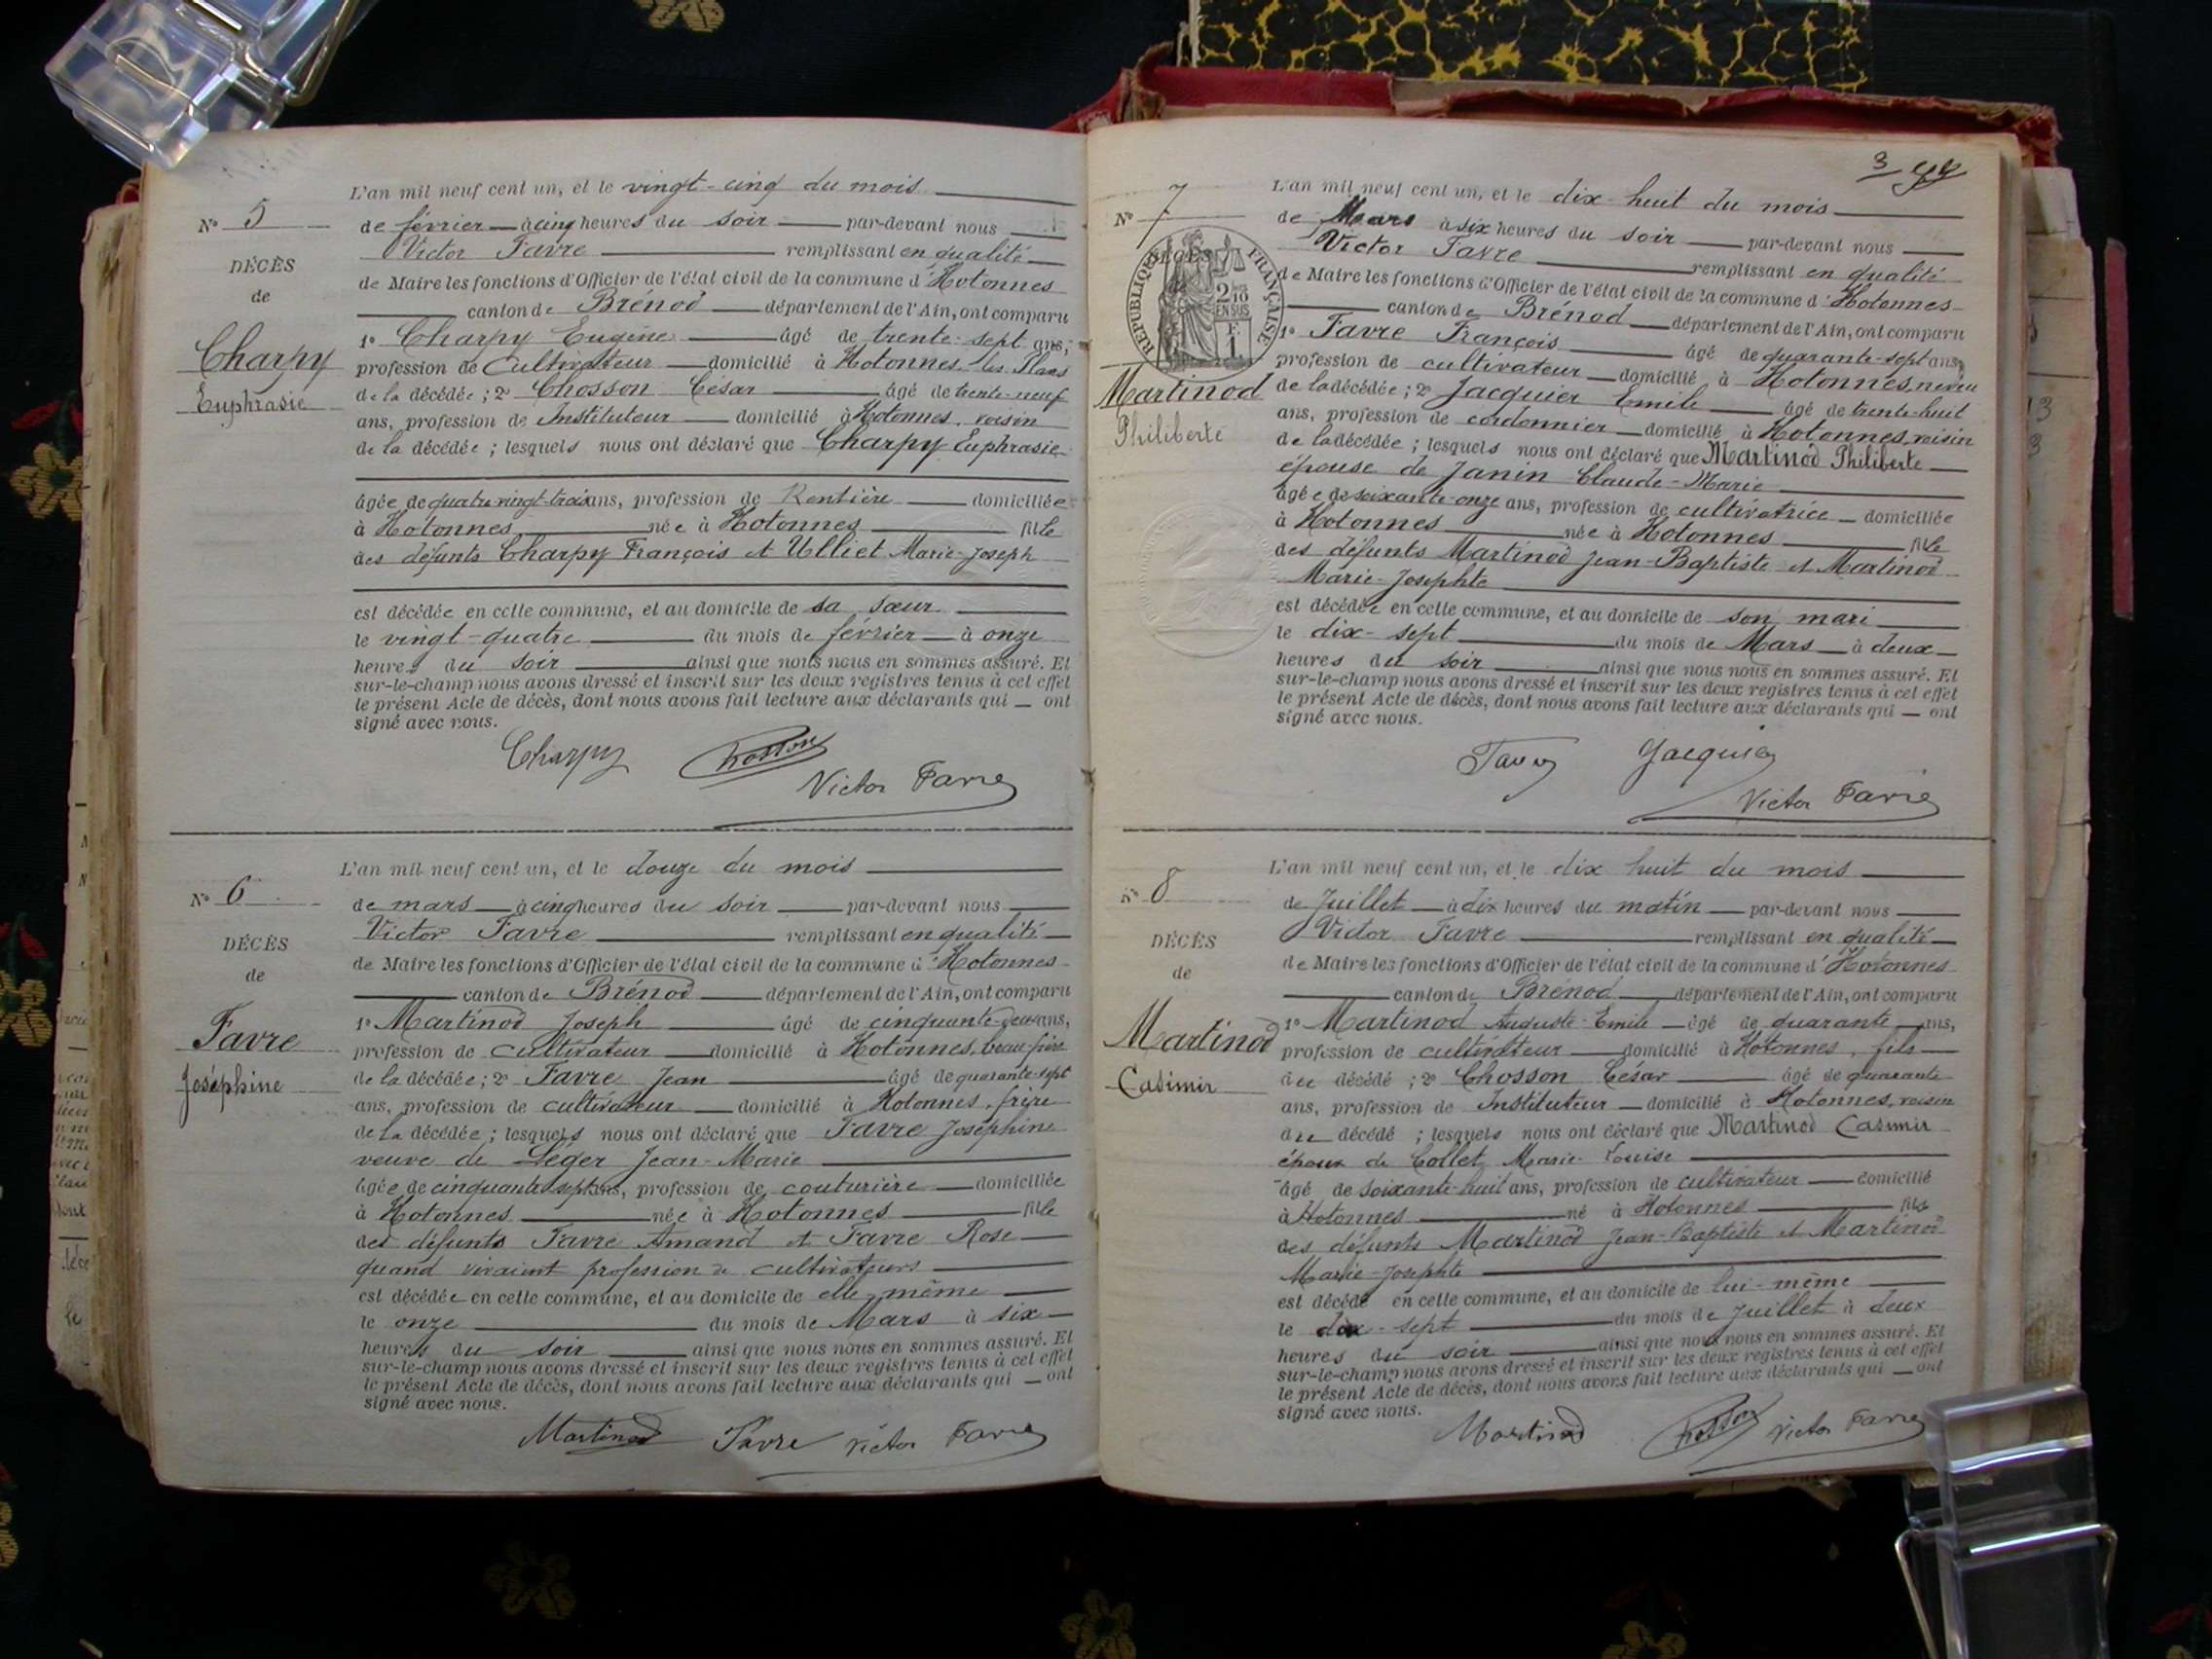 L'an mil neuf cent un, et le vingt-cinq du mois
N° 5
de février à cinq heures du soir par-devant nous
Victor Favre remplissant en qualité
DÉCÈS
de Maire les fonctions d'Officier de l'état civil de la commune d'Hotonnes
de
canton de Brénod département de l'Ain, ont comparu
1° Charpy Eugène âgé de trente-sept ans,
Charpy
profession de Cultivateur domicilié à Hotonnes, les Plans
de la décédée ; 2° Chosson César âgé de trente-neuf
Euphrasie
ans, profession de Instituteur domicilié à Hotonnes, voisin
de la décédée ; lesquels nous ont déclaré que Charpy Euphrasie
âgée de quatre-vingt-trois ans, profession de Rentière domiciliée
à Hotonnes née à Hotonnes fille
des défunts Charpy François et Ulliet Marie-Joseph
est décédée en cette commune, et au domicile de sa sœur
le vingt-quatre du mois de février à onze
heures du soir ainsi que nous nous en sommes assuré. Et
sur-le-champ nous avons dressé et inscrit sur les deux registres tenus à cet effet
le présent Acte de décès, dont nous avons fait lecture aux déclarants qui ont
signé avec nous.
Charpy Chosson
Victor Favre
L'an mil neuf cent un, et le douze du mois
N° 6
de mars à cinq heures du soir par-devant nous
Victor Favre remplissant en qualité
DÉCÈS
de Maire les fonctions d'Officier de l'état civil de la commune d'Hotonnes
de
canton de Brénod département de l'Ain, ont comparu
1° Martinod Joseph âgé de cinquante-deux ans,
Favre
profession de cultivateur domicilié à Hotonnes, beau-frère
de la décédée ; 2° Favre Jean âgé de quarante-sept
Joséphine
ans, profession de cultivateur domicilié à Hotonnes, frère
de la décédée ; lesquels nous ont déclaré que Favre Joséphine
veuve de Léger Jean-Marie
âgée de cinquante-sept ans, profession de couturière domiciliée
à Hotonnes née à Hotonnes fille
des défunts Favre Amand et Favre Rose
quand vivaient profession de cultivateurs
est décédée en cette commune, et au domicile de elle-même
le onze du mois de Mars à six
heures du soir ainsi que nous nous en sommes assuré. Et
sur-le-champ nous avons dressé et inscrit sur les deux registres tenus à cet effet
le présent Acte de décès, dont nous avons fait lecture aux déclarants qui ont
signé avec nous.
Martinod Favre Victor Favre
3
L'an mil neuf cent un, et le dix-huit du mois
N° 7
de Mars à six heures du soir par-devant nous
Victor Favre remplissant en qualité
DÉCÈS
RÉPUBLIQUE FRANÇAISE
2/10 EN SUS
F. 1
de Maire les fonctions d'Officier de l'état civil de la commune d'Hotonnes
canton de Brénod département de l'Ain, ont comparu
1° Favre François âgé de quarante-sept ans,
profession de cultivateur domicilié à Hotonnes, neveu
Martinod
de la décédée ; 2° Jacquier Emile âgé de trente-huit
ans, profession de cordonnier domicilié à Hotonnes, voisin
Philiberte
de la décédée ; lesquels nous ont déclaré que Martinod Philiberte
épouse de Janin Claude-Marie
âgée de soixante-onze ans, profession de cultivatrice domiciliée
à Hotonnes née à Hotonnes fille
des défunts Martinod Jean-Baptiste et Martinod
Marie-Josephte
est décédée en cette commune, et au domicile de son mari
le dix-sept du mois de Mars à deux
heures du soir ainsi que nous nous en sommes assuré. Et
sur-le-champ nous avons dressé et inscrit sur les deux registres tenus à cet effet
le présent Acte de décès, dont nous avons fait lecture aux déclarants qui ont
signé avec nous.
Favre Jacquier
Victor Favre
L'an mil neuf cent un, et le dix huit du mois
N° 8
de Juillet à dix heures du matin par-devant nous
Victor Favre remplissant en qualité
DÉCÈS
de Maire les fonctions d'Officier de l'état civil de la commune d'Hotonnes
de
canton de Brénod département de l'Ain, ont comparu
1° Martinod Auguste-Emile âgé de quarante ans,
Martinod
profession de cultivateur domicilié à Hotonnes, fils
du décédé ; 2° Chosson César âgé de quarante
Casimir
ans, profession de Instituteur domicilié à Hotonnes, voisin
du décédé ; lesquels nous ont déclaré que Martinod Casimir
époux de Collet Marie-Louise
âgé de soixante-huit ans, profession de cultivateur domicilié
à Hotonnes né à Hotonnes fils
des défunts Martinod Jean-Baptiste et Martinod
Marie-Josephte
est décédé en cette commune, et au domicile de lui-même
le dix-sept du mois de Juillet à deux
heures du soir ainsi que nous nous en sommes assuré. Et
sur-le-champ nous avons dressé et inscrit sur les deux registres tenus à cet effet
le présent Acte de décès, dont nous avons fait lecture aux déclarants qui ont
signé avec nous.
Martinod Chosson Victor Favre